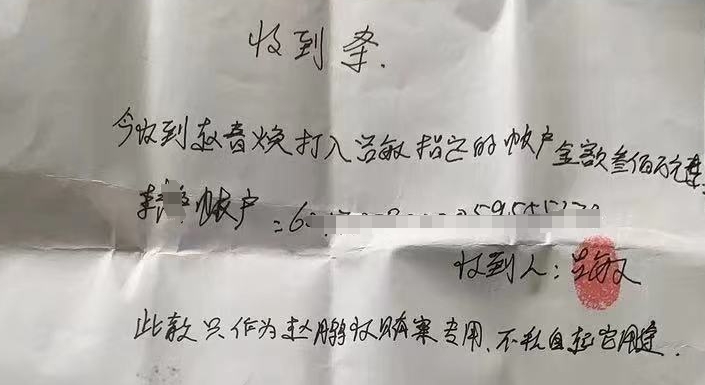 收到条.
今收到赵春焕打入吕敏指定的帐户金额叁佰万元
李 帐户:6
收到人:吕敏
此款只作为赵鹏 案专用、不私自 它用途.